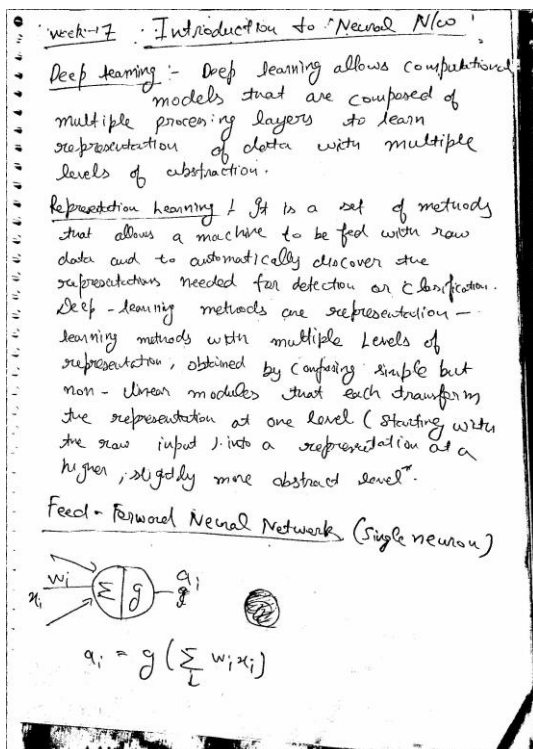 week-7 Introduction to Neural N/w
Deep learning :- Deep learning allows computational
models that are composed of
multiple processing layers to learn
representation of data with multiple
levels of abstraction.
Representation Learning : It is a set of methods
that allows a machine to be fed with raw
data and to automatically discover the
representations needed for detection or classification.
Deep-learning methods are representation-
learning methods with multiple Levels of
representation, obtained by composing simple but
non-linear modules that each transform
the representation at one level (starting with
the raw input) into a representation at a
higher, slightly more abstract level".
Feed-Forward Neural Network (Single neuron)
wi ai
xi Σ g g
ai = g (Σ wi xi)
i